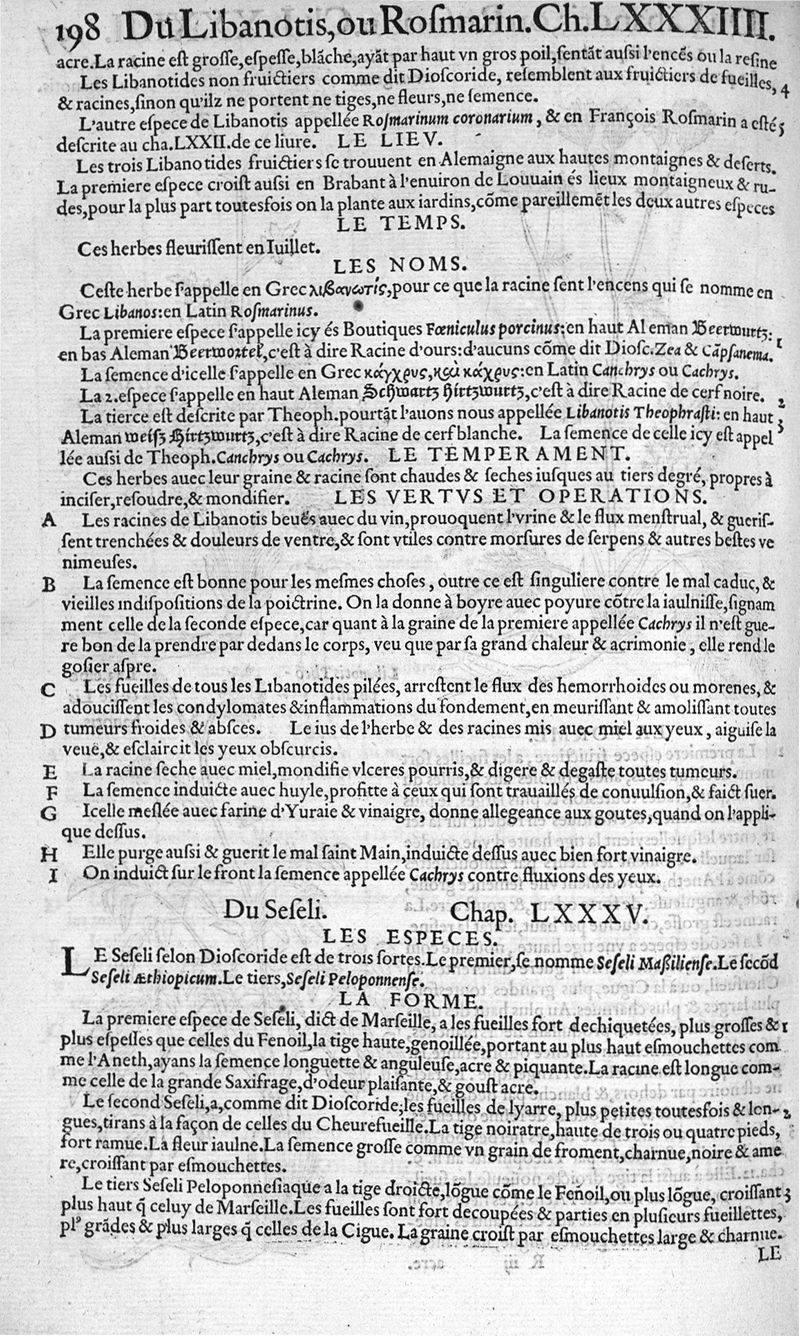 198 Du Libanotis, ou Roſmarin. Ch. LXXXIIII.
acre. La racine eſt groſſe, eſpeſſe, blāche, ayāt par haut vn gros poil, ſentāt auſſi l'encés ou la reſine
Les Libanotides non fruictiers comme dit Dioſcoride, reſemblent aux fruictiers de fueilles, 4
& racines, ſinon qu'ilz ne portent ne tiges, ne fleurs, ne ſemence.
L'autre eſpece de Libanotis appellée Roſmarinum coronarium, & en François Roſmarin a eſté 5
deſcrite au cha. LXXII. de ce liure. LE LIEV.
Les trois Libanotides fruictiers ſe trouuent en Alemaigne aux hautes montaignes & deſerts.
La premiere eſpece croiſt auſſi en Brabant à l'enuiron de Louuain és lieux montaigneux & ru-
des, pour la plus part toutesfois on la plante aux iardins, cōme pareillemēt les deux autres eſpeces
LE TEMPS.
Ces herbes fleuriſſent en Iuillet.
LES NOMS.
Ceſte herbe ſ'appelle en Grec λιβανωτίς, pour ce que la racine ſent l'encens qui ſe nomme en
Grec Libanos: en Latin Roſmarinus.
La premiere eſpece ſ'appelle icy és Boutiques Fœniculus porcinus: en haut Aleman Beerwurtz: 1
en bas Aleman Beerwortel, c'eſt à dire Racine d'ours: d'aucuns cōme dit Dioſc. Zea & Cāpſanema.
La ſemence d'icelle ſ'appelle en Grec κάγχρυς, καὶ κάχρυς: en Latin Canchrys ou Cachrys.
La 2. eſpece ſ'appelle en haut Aleman Schwartz Hirtzwurtz, c'eſt à dire Racine de cerf noire. 2
La tierce eſt deſcrite par Theoph. pourtāt l'auons nous appellée Libanotis Theophraſti: en haut 3
Aleman weiſz Hirtzwurtz, c'eſt à dire Racine de cerf blanche. La ſemence de celle icy eſt appel
lée auſſi de Theoph. Canchrys ou Cachrys. LE TEMPERAMENT.
Ces herbes auec leur graine & racine ſont chaudes & ſeches iuſques au tiers degré, propres à
inciſer, reſoudre, & mondifier. LES VERTVS ET OPERATIONS.
A Les racines de Libanotis beuës auec du vin, prouoquent l'vrine & le flux menſtrual, & gueriſ-
ſent trenchées & douleurs de ventre, & ſont vtiles contre morſures de ſerpens & autres beſtes ve
nimeuſes.
B La ſemence eſt bonne pour les meſmes choſes, outre ce eſt ſinguliere contre le mal caduc, &
vieilles indiſpoſitions de la poictrine. On la donne à boyre auec poyure cōtre la iaulniſſe, ſignam
ment celle de la ſeconde eſpece, car quant à la graine de la premiere appellée Cachrys il n'eſt gue-
re bon de la prendre par dedans le corps, veu que par ſa grand chaleur & acrimonie, elle rend le
goſier aſpre.
C Les fueilles de tous les Libanotides pilées, arreſtent le flux des hemorrhoides ou morenes, &
adouciſſent les condylomates & inflammations du fondement, en meuriſſant & amoliſſant toutes
D tumeurs froides & abſces. Le ius de l'herbe & des racines mis auec miel aux yeux, aiguiſe la
veuë, & eſclaircit les yeux obſcurcis.
E La racine ſeche auec miel, mondifie vlceres pourris, & digere & degaſte toutes tumeurs.
F La ſemence induicte auec huyle, profitte à ceux qui ſont trauaillés de conuulſion, & faict ſuer.
G Icelle meſlée auec farine d'Yuraie & vinaigre, donne allegeance aux goutes, quand on l'appli-
que deſſus.
H Elle purge auſſi & guerit le mal ſaint Main, induicte deſſus auec bien fort vinaigre.
I On induict ſur le front la ſemence appellée Cachrys contre fluxions des yeux.
Du Seſeli. Chap. LXXXV.
LES ESPECES.
LE Seſeli ſelon Dioſcoride eſt de trois ſortes. Le premier, ſe nomme Seſeli Maßilienſe. Le ſecōd
Seſeli Æthiopicum. Le tiers, Seſeli Peloponnenſe.
LA FORME.
La premiere eſpece de Seſeli, dict de Marſeille, a les fueilles fort dechiquetées, plus groſſes & 1
plus eſpeſſes que celles du Fenoil, la tige haute, genoillée, portant au plus haut eſmouchettes com
me l'Aneth, ayans la ſemence longuette & anguleuſe, acre & piquante. La racine eſt longue com-
me celle de la grande Saxifrage, d'odeur plaiſante, & gouſt acre.
Le ſecond Seſeli, a, comme dit Dioſcoride, les fueilles de lyarre, plus petites toutesfois & lon- 2
gues, tirans à la façon de celles du Cheurefueille. La tige noiratre, haute de trois ou quatre pieds,
fort ramue. La fleur iaulne. La ſemence groſſe comme vn grain de froment, charnue, noire & ame
re, croiſſant par eſmouchettes.
Le tiers Seſeli Peloponneſiaque a la tige droicte, lōgue cōme le Fenoil, ou plus lōgue, croiſſant 3
plus haut q̃ celuy de Marſeille. Les fueilles ſont fort decoupées & parties en pluſieurs fueillettes,
plꝰ grādes & plus larges q̃ celles de la Cigue. La graine croiſt par eſmouchettes large & charnue.
LE